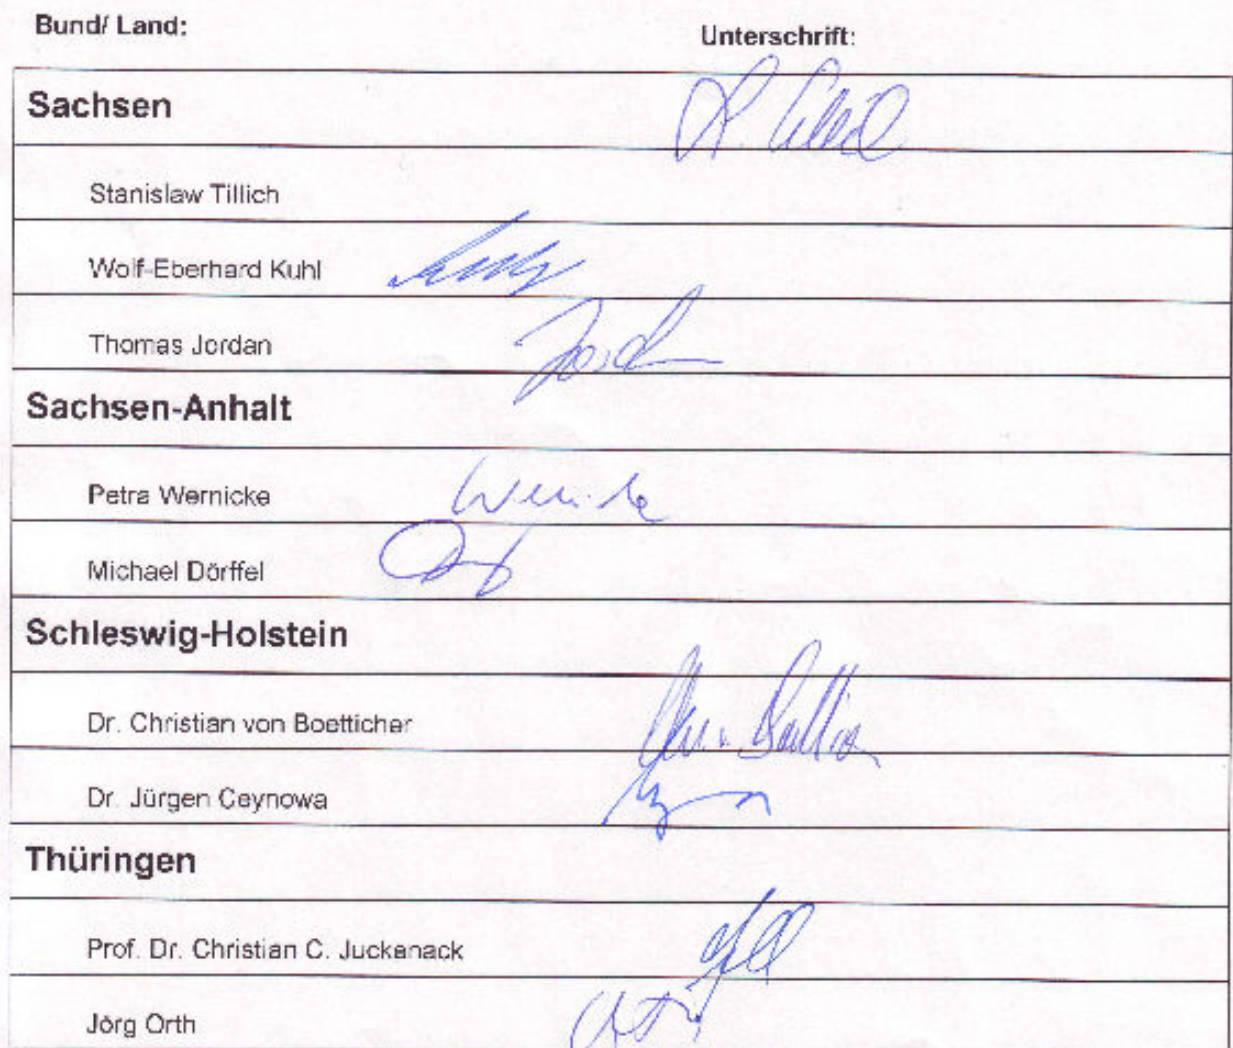 Bund/ Land:
Unterschrift:
Sachsen
Stanislaw Tillich
Wolf-Eberhard Kuhl
Thomas Jordan
Sachsen-Anhalt
Petra Wernicke
Michael Dörffel
Schleswig-Holstein
Dr. Christian von Boetticher
Dr. Jürgen Ceynowa
Thüringen
Prof. Dr. Christian C. Juckenack
Jörg Orth